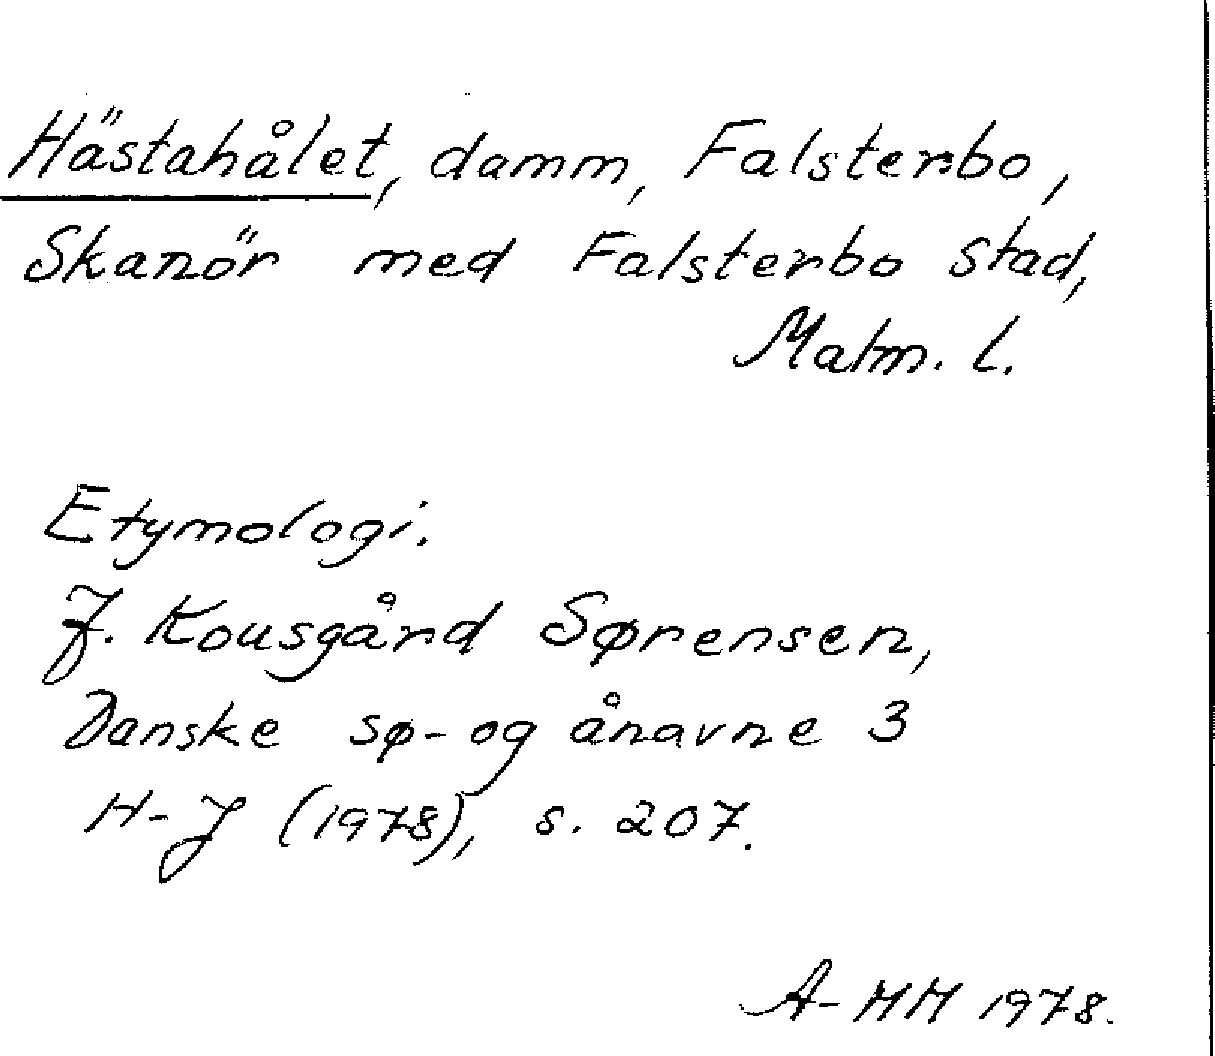 Hästahålet, damm, Falsterbo,
Skanör med Falsterbo stad,
Malm. l.
Etymologi.
J. Kousgård Sørensen,
Danske sø- og ånavne 3
H-J (1978), s. 207.
A-MM 1978.